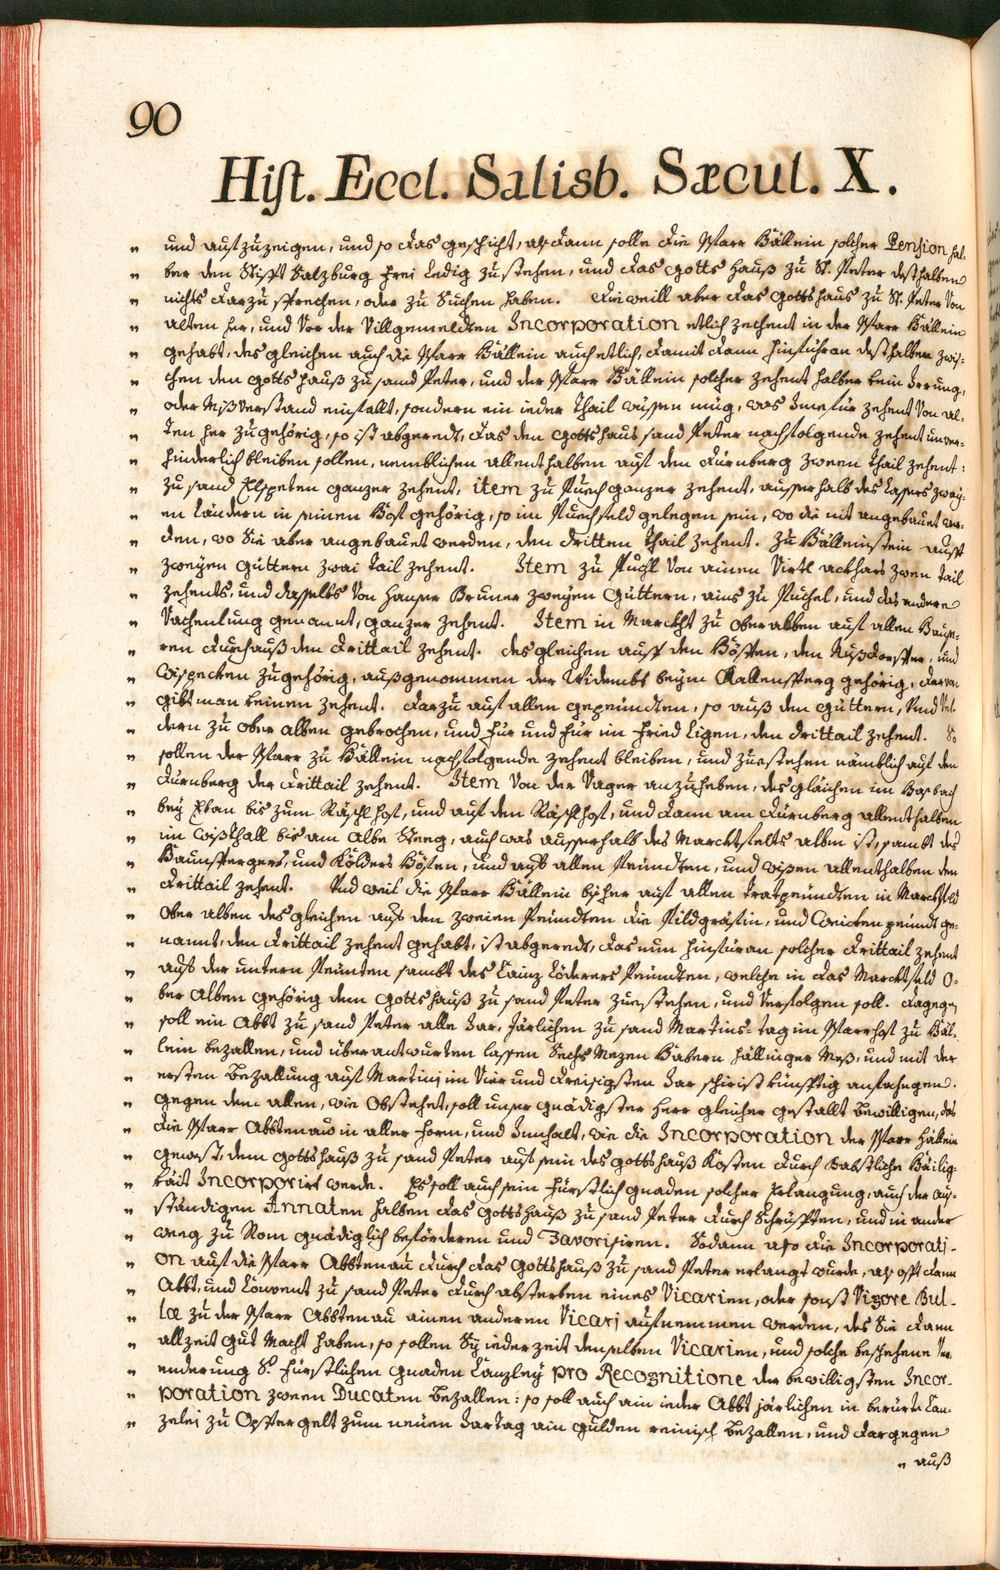 90
Hist. Eccl. Salisb. Sæcul. X.
„ und aufzuzeigen, und so das geschicht, alsdann solle die Pfarr Hällein solcher Pension hal-
„ ber den Stifft Salzburg frei Ledig zustehen, und das Gotts Hauß zu St. Peter desthalben
„ nichts darzu sprechen, oder zu Suchen haben. Dieweill aber das Gottshaus zu St. Peter Von
„ altem her, und Vor der Villgemeldten Incorporation etlich zechent in der Pfarr Hällein
„ gehabt, des gleichen auch die Pfarr Hällein auch etlich, damit dann hinfüran desthalben zwi-
„ schen den Gotts Hauß zu sand Peter, und der Pfarr Hällein solcher zehent halber kein Irrung,
„ oder Mißverstand einfallt, sondern ein ieder Thail wissen müg, was Ime für zehent Von al-
„ ten her zugehörig, so ist abgeredt, das den Gottshaus sand Peter nachfolgende zehent unver-
„ hinderlich bleiben sollen, nemblichen allenthalben auf den Dürnberg zween Thail zehent:
„ zu sand Elspeten ganzer zehent, item zu Puech ganzer zehent, ausserhalb des Casers zway-
„ en Ländern in seinen Hof gehörig, so im Puechfeld gelegen sein, wo die nit angebauet wer-
„ den, wo Sie aber angebauet werden, den dritten Thail zehent. Zu Hälleinstein auff
„ zweyen Güttern zwai Tail zehent. Item zu Puchl Von ainen Virtl ackhers zwen Tail
„ zehents, und daselbs Von Hanser Bruner zweyen Güttern, ains zu Puchel, und das andere
„ Vachenlung genannt, ganzer zehent. Item in Marckht zu Oberalben auf allen
„ ren durchauß den Drittail zehent. desgleichen auff den Höffen, den Nußdorffer, und
„ Wispecken zugehörig, außgenommen der Widembt beym Kaltensperg gehörig, darvon
„ gibt man keinen zehent. Darzu auf allen gepeündten, so auß den Güttern, Und
„ dern zu Ober alben gebrochen, und für und für im Fried Ligen, den Drittail zehent. So
„ sollen der Pfarr zu Hällein nachfolgende zehent bleiben, und zuestehen nämblich auf den
„ Dürnberg der Drittail zehent. Item Von der Vager anzuheben, des gleichen im
„ bey bis zum Räschlhof, und auf den Räschlhof, und dann am Dürnberg allenthalben
„ im bis am Albe Steeg, auch was ausserhalb des Marcktfelts alben ist, sambt des
„ Haunspergers, und Hölders Höfen, und auß allen Peündten, und wisen allenthalben den
„ Drittail zehent. Und weil die Pfarr Hällein bißher auf allen in Marcktfeld
„ Ober alben des gleichen auß den zweien Peündten die und ge-
„ nannt, den Drittail zehent gehabt, ist abgeredt, das nun hinfüran solcher Drittail zehent
„ auß der untern Peünten sambt des Cainz Löderers Peündten, welche in das Marcktfeld O-
„ ber Alben gehörig dem Gottshauß zu sand Peter zuestehen, und Verfolgen soll. Dagegen
„ soll ein Abbt zu sand Peter alle Jar, Järlichen zu sand Martins-Tag im Pfarrhof zu Häl-
„ lein bezallen, und überantwurten lassen Sechs Mezen Habern Hällinger Meß, und mit der
„ ersten bezallung auf Martini im Vier und dreisigsten Jar schirist künfftig anfachen.
„ Gegen dem allen, wie Obstehet, soll unser gnädigster Herr gleicher gestallt bewilligen, das
„ die Pfarr Abbtenau in aller Form, und Innhalt, wie die Incorporation der Pfarr Hällein
„ gewest, dem Gottshauß zu sand Peter auf sein des Gottshauß Kosten durch Babstliche Häilig-
„ kait Incorporirt werde. Es soll auch sein Fürstlich gnaden solcher Erlangung, auch der auf-
„ ständigen Annaten halben das Gottshauß zu sand Peter durch Schrifften, und in ander
„ weeg zu Rom gnädiglich beförderen und Favorisiren. Sodann also die Incorporati-
„ on auf die Pfarr Abbtenau durch das Gottshauß zu sand Peter erlangt wurde, als offt dann
„ Abbt, und Convent zu sand Peter durch absterben eines Vicarien, oder sonst Vigore Bul-
„ læ zu der Pfarr Abbtenau ainen anderen Vicarj aufnemmen werden, des Sie dann
„ allzeit gut Macht haben, so sollen Sy ieder zeit denselben Vicarien, und solche beschehene Ver-
„ enderung Sr. Fürstlichen Gnaden Canzley pro Recognitione der bewilligten Incor-
„ poration zween Ducaten bezallen: so soll auch ain ieder Abbt järlichen in berürte Can-
„ zelei zu Opffer gelt zum neuen Jartag ain gulden reinisch bezallen, und dargegen
„ auß